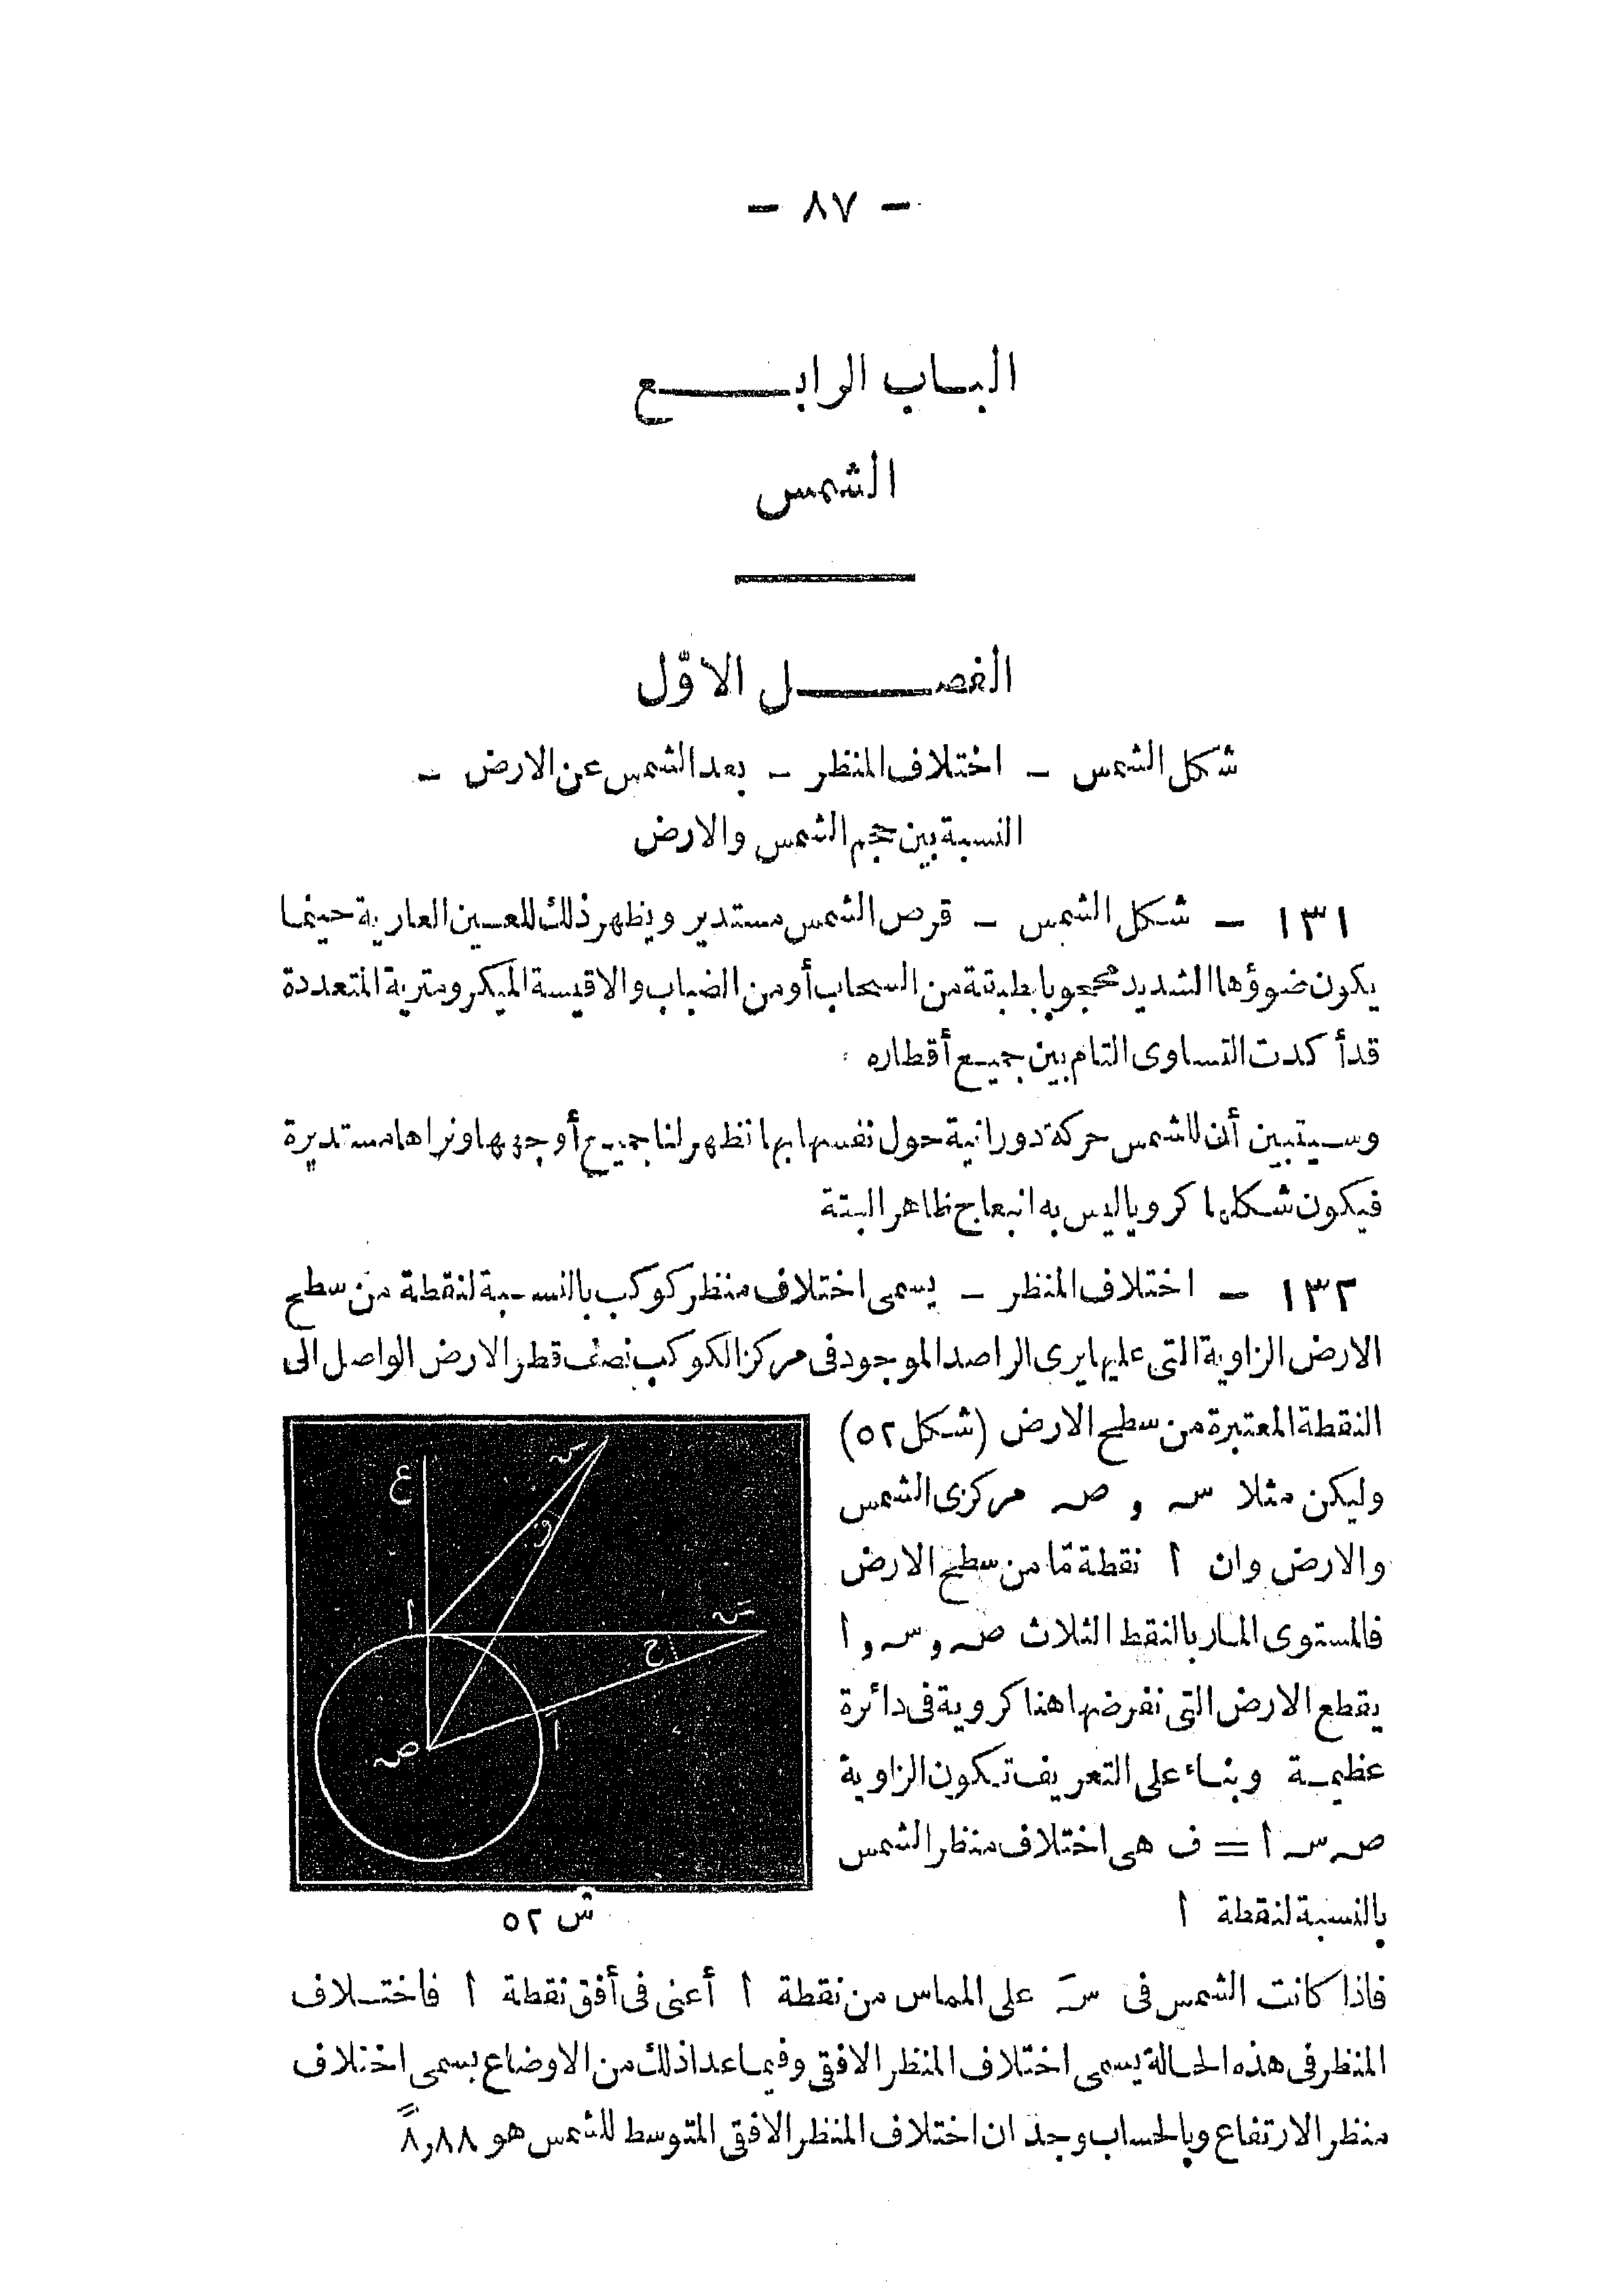 - ٨٧ -
الباب الرابع
الشمس
الفصل الاوّل
شكل الشمس - اختلاف المنظر - بعد الشمس عن الارض -
النسبة بين حجم الشمس والارض
١٣١ - شكل الشمس - قرص الشمس مستدير ويظهر ذلك للعين العارية حينما
يكون ضوؤها الشديد محجوبا بطبقة من السحاب أو من الضباب والاقيسة الميكرومترية المتعددة
قد أكدت التساوى التام بين جميع أقطاره
وسيتبين أن للشمس حركة دورانية حول نفسها بها تظهر لنا جميع أوجهها ونراها مستديرة
فيكون شكلها كرويا ليس به انبعاج ظاهر البتة
١٣٢ - اختلاف المنظر - يسمى اختلاف منظر كوكب بالنسبة لنقطة من سطح
الارض الزاوية التى عليها يرى الراصد الموجود فى مركز الكوكب نصف قطر الارض الواصل الى
النقطة المعتبرة من سطح الارض (شكل ٥٢)
وليكن مثلا سـ و صـ مركزى الشمس
والارض وان ا نقطة مّا من سطح الارض
فالمستوى المار بالنقط الثلاث صـ و سـ و ا
يقطع الارض التى نفرضها هنا كروية فى دائرة
عظيمة وبناء على التعريف تكون الزاوية
صـ سـ ا = ف هى اختلاف منظر الشمس
بالنسبة لنقطة ا
ع
سـ
ف
ا
سـَ
ح
اَ
صـ
ش ٥٢
فاذا كانت الشمس فى سـَ على المماس من نقطة ا أعنى فى أفق نقطة ا فاختلاف
المنظر فى هذه الحالة يسمى اختلاف المنظر الافقى وفيما عدا ذلك من الاوضاع يسمى اختلاف
منظر الارتفاع وبالحساب وجد ان اختلاف المنظر الافقى المتوسط للشمس هو ٨,٨٨ً